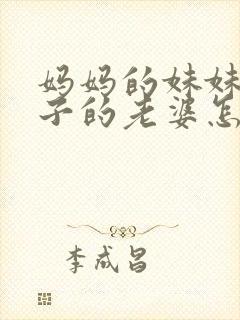 妈妈的妹妹
子的老婆怎
李成昌